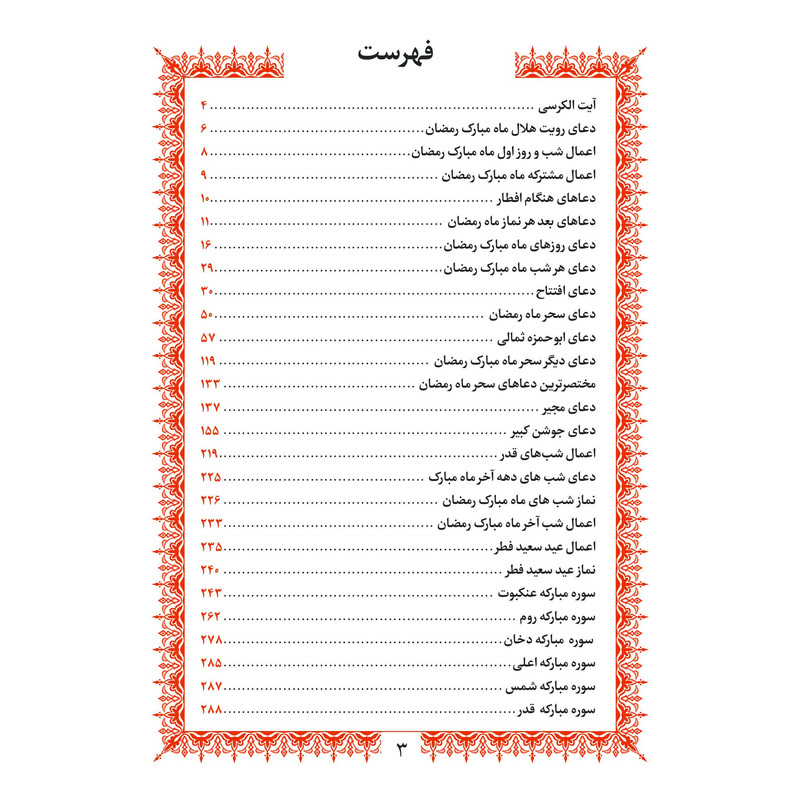 فهرست
آیت الکرسی ۴
دعای رویت هلال ماه مبارک رمضان ۶
اعمال شب و روز اول ماه مبارک رمضان ۸
اعمال مشترکه ماه مبارک رمضان ۹
دعاهای هنگام افطار ۱۰
دعاهای بعد هر نماز ماه رمضان ۱۱
دعای روزهای ماه مبارک رمضان ۱۶
دعای هر شب ماه مبارک رمضان ۲۹
دعای افتتاح ۳۰
دعای سحر ماه رمضان ۵۰
دعای ابوحمزه ثمالی ۵۷
دعای دیگر سحر ماه مبارک رمضان ۱۱۹
مختصرترین دعاهای سحر ماه رمضان ۱۳۳
دعای مجیر ۱۳۷
دعای جوشن کبیر ۱۵۵
اعمال شب‌های قدر ۲۱۹
دعای شب های دهه آخر ماه مبارک ۲۲۵
نماز شب های ماه مبارک رمضان ۲۲۶
اعمال شب آخر ماه مبارک رمضان ۲۳۳
اعمال عید سعید فطر ۲۳۵
نماز عید سعید فطر ۲۴۰
سوره مبارکه عنکبوت ۲۴۳
سوره مبارکه روم ۲۶۲
سوره مبارکه دخان ۲۷۸
سوره مبارکه اعلی ۲۸۵
سوره مبارکه شمس ۲۸۷
سوره مبارکه قدر ۲۸۸
۳